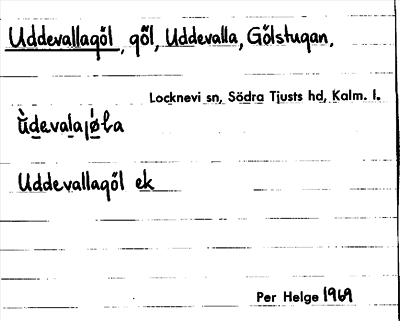 Uddevallagöl, göl, Uddevalla, Gölstugan,
Locknevi sn, Södra Tjusts hd, Kalm. l.
ùdevalajǿla
Uddevallagöl ek
Per Helge 1969